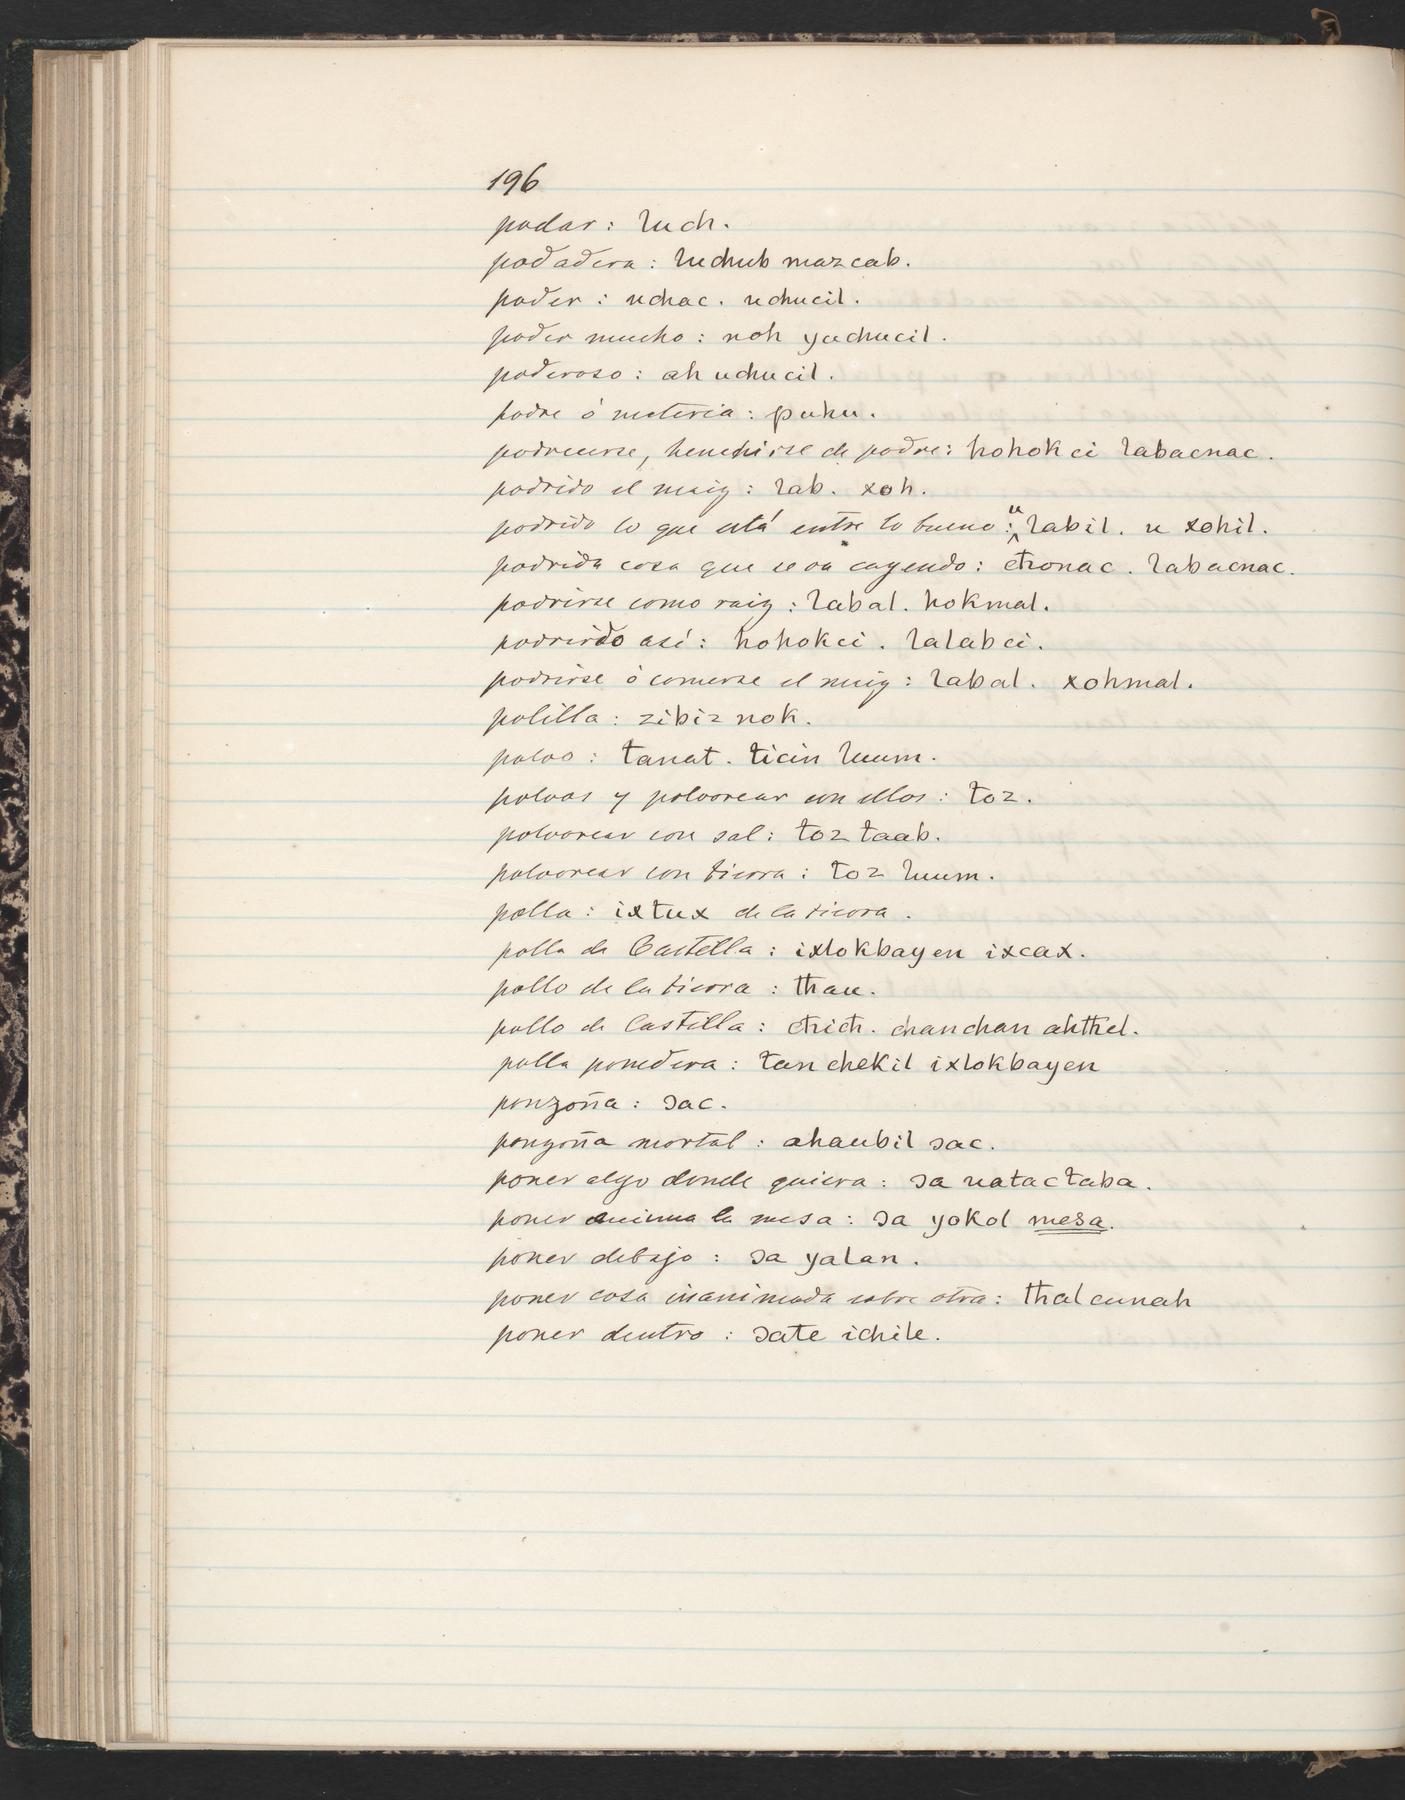 196
podar: luch.
podadera: luchub mazcab.
poder: uchac. uchucil.
poder mucho: noh yuchucil.
poderoso: ah uchucil.
podre ó materia: puhu.
podrecerse, henchirse de podre: hohokci labacnac.
podrido el maiz: lab. xoh.
podrido lo que está entre lo bueno: u labil. u xohil.
podrida cosa que se va cayendo: cħonac. labacnac.
podrirse como raiz: labal. hokmal.
podrirdo así: hohokci. lalabci.
podrirse ó comerse el maiz: labal. xohmal.
polilla: zibiz nok.
polvo: tanat. ticin luum.
polvos y polvorear con ellos: toz.
polvorear con sal: toz taab.
polvorear con tierra: toz luum.
polla: ixtux de la tierra.
polla de Castilla: ixlokbayen ixcax.
pollo de la tierra: tħau.
pollo de Castilla: cħicħ. chanchan ahtħel.
polla ponedera: tan chekil ixlokbayen
ponzoña: ɔac.
ponzoña mortal: ahaubil ɔac.
poner algo donde quiera: ɔa uatactaba.
poner encima la mesa: ɔa yokol mesa.
poner debajo: ɔa yalan.
poner cosa inanimada sobre otra: tħalcunah
poner dentro: ɔate ichile.